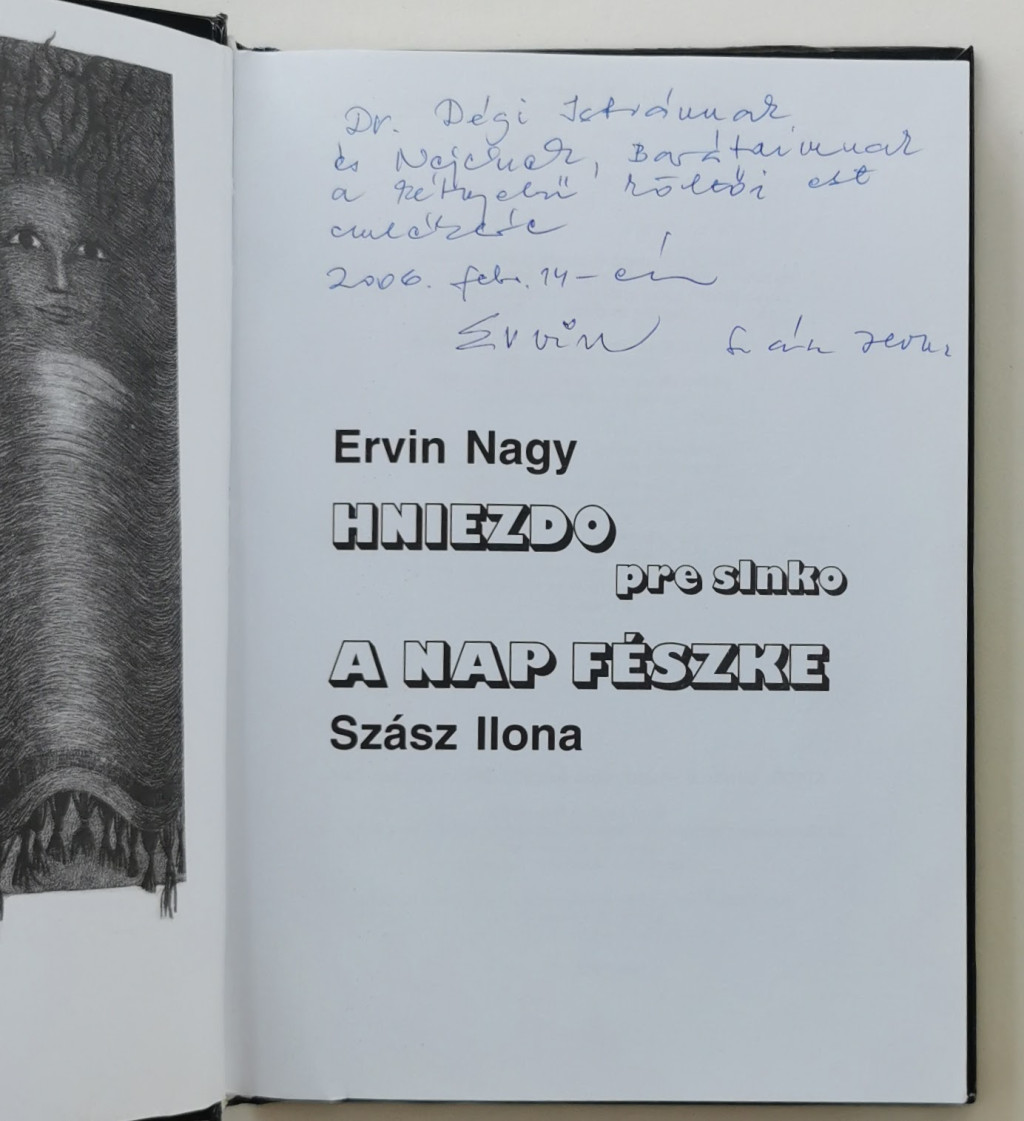 Dr. Dégi Istvánnak
és Nejének, Barátaimnak
a kétnyelvű költői est
emlékére
2006. febr. 14-én
Ervin Szász Ilona
Ervin Nagy
HNIEZDO
pre slnko
A NAP FÉSZKE
Szász Ilona